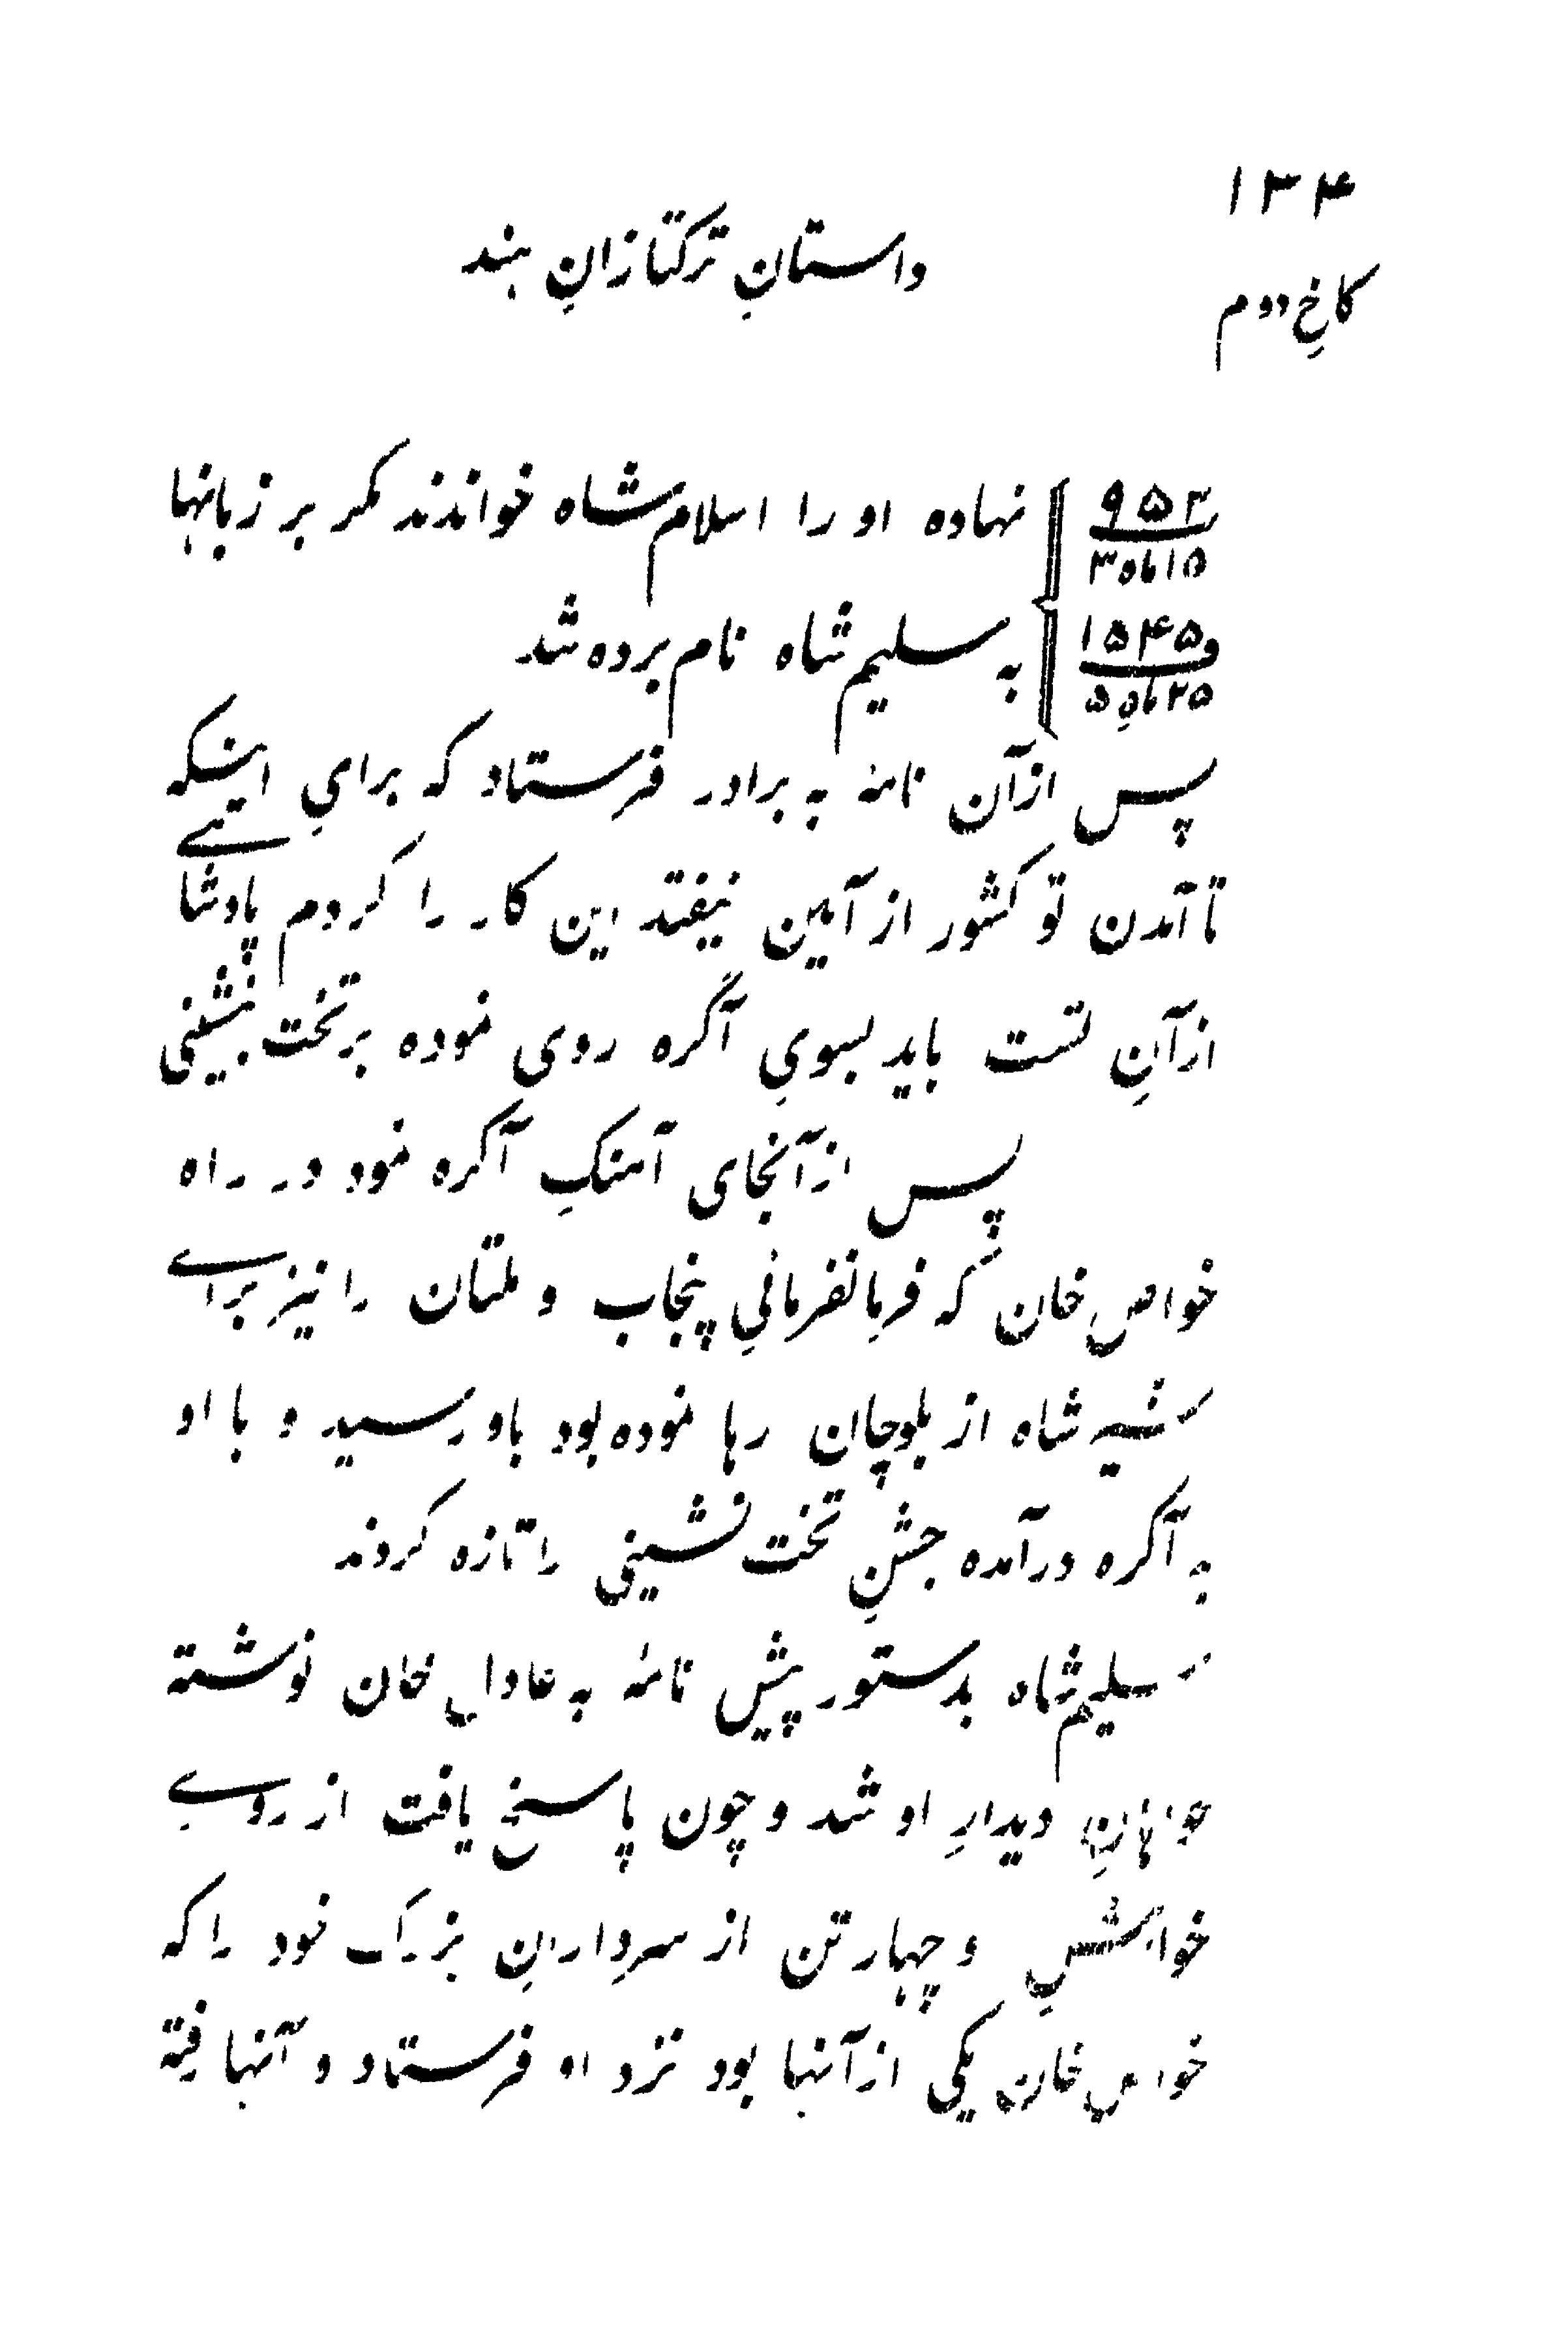 ۱۳۴
داستانِ ترکتازانِ هند
کاخِ دوم
نهاده او را اسلام شاه خواندند مگر بر زبانها
۹۵۲
۱۵ ماه ۳
به سلیم شاه نام برده شد
۱۵۴۵
۲۵ ماهِ ۵
پس ازآن نامهٔ به برادر فرستاد که برایِ اینکه
تا آمدن تو کشور از آئین نیفتد این کار را کردم پادشاهے
ازآنِ تست باید بسویِ آگره روی نموده بر تخت بنشینی
پس ازآنجای آهنکِ آکره نمود در راه
خواص خان که فرمانفرمانیِ پنجاب و ملتان را نیز براے
شیر شاه از بلوچان رها نموده بود باو رسید و با او
به آکره درآمده جشنِ تخت نشینی را تازه کردند
سلیم شاه بدستور پیش نامهٔ به عادل خان نوشته
خواهانِ دیدارِ او شد و چون پاسخ یافت از روے
خواهشش و چهار تن از سردارانِ بزرک خود را که
خواص خان یکی ازآنها بود نزد او فرستاد و آنها رفته